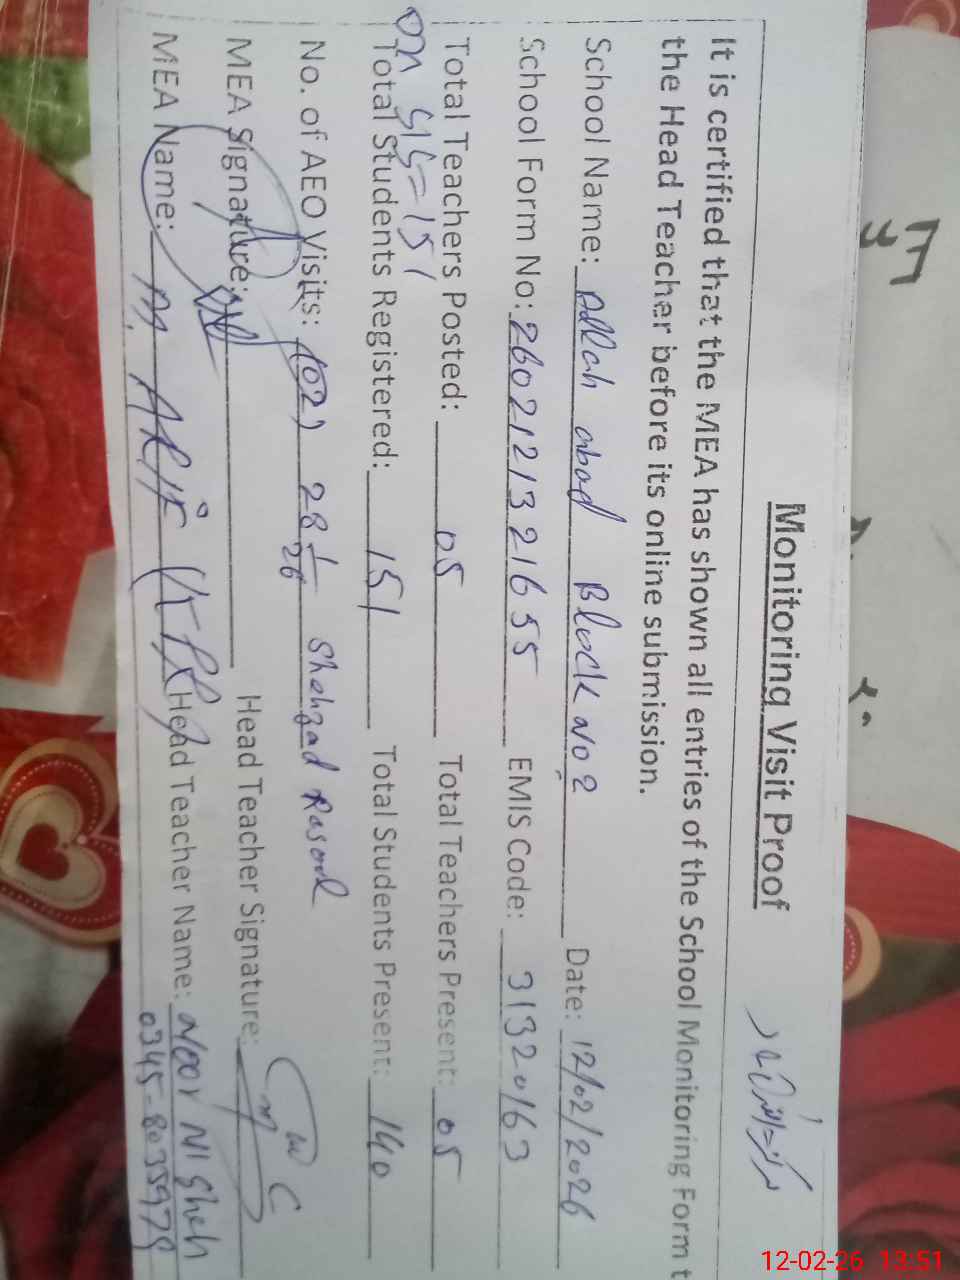 Monitoring Visit Proof
It is certified that the MEA has shown all entries of the School Monitoring Form t
the Head Teacher before its online submission.
School Name: Allah abad Block No 2 Date: 12/02/2026
School Form No: 260212132 1655 EMIS Code: 31320163
Total Teachers Posted: 05 Total Teachers Present: 05
on SIS = 151
Total Students Registered: 151 Total Students Present: 140
No. of AEO Visits: (02) 28/1/26 Shahzad Rasool
MEA Signature: Head Teacher Signature:
MEA Name: M. ARIF Head Teacher Name: Noor
0345-8035979
12-02-26 13:51